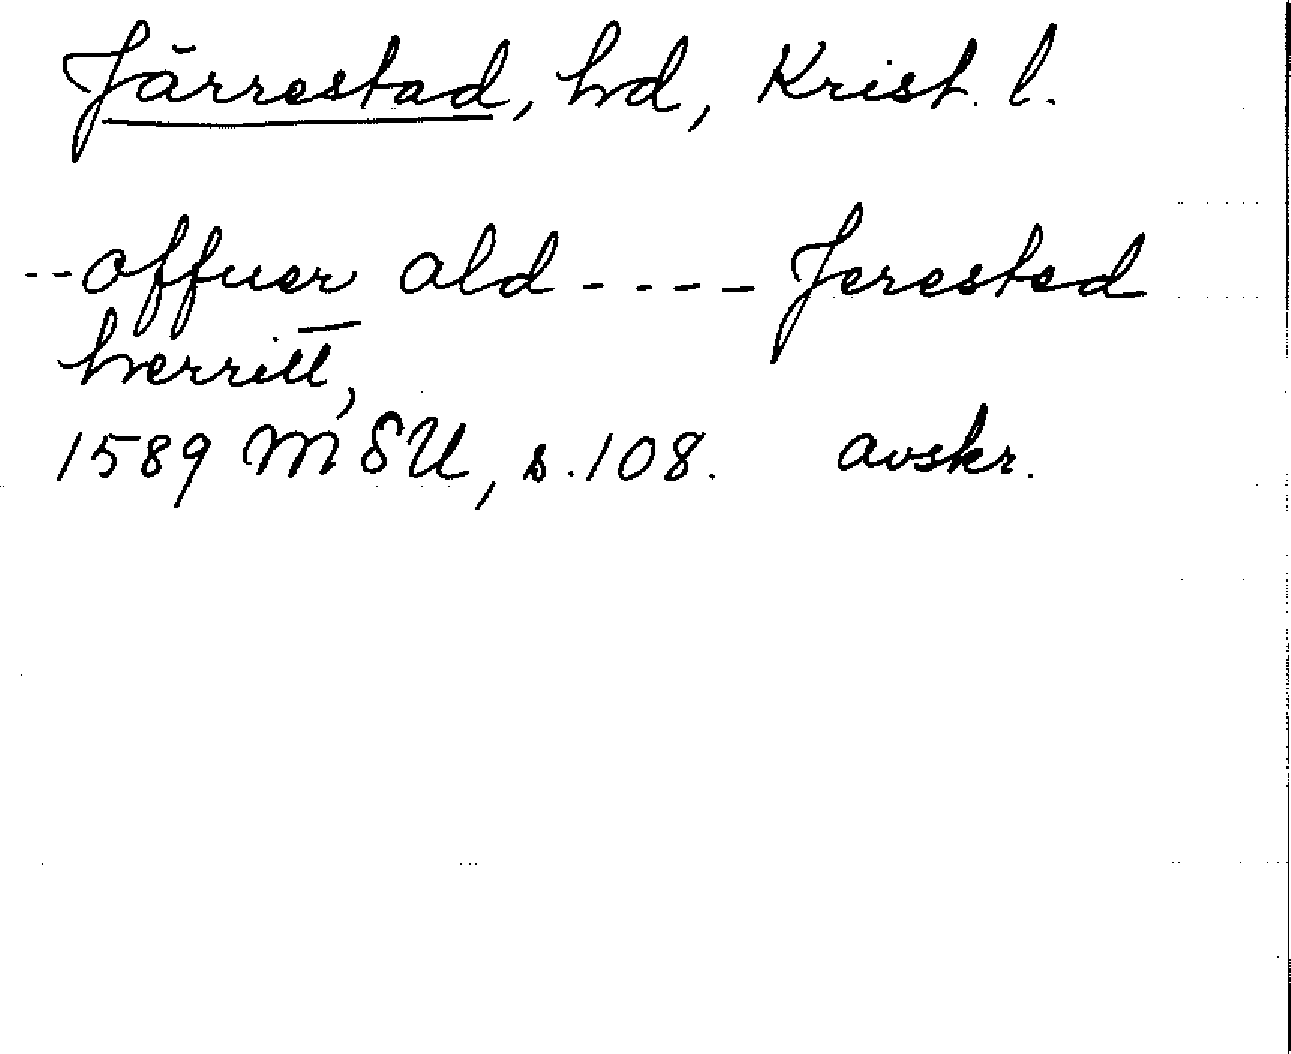 Järrestad, hd, Krist. l.
--offuer ald---- Jerested
herritt,
1589 MSU, s. 108. avskr.